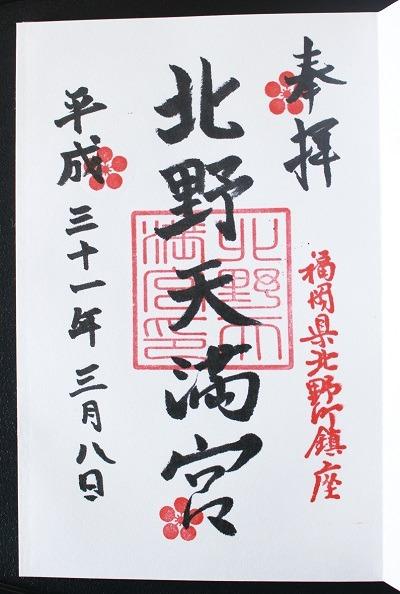 奉拝
福岡県北野町鎮座
北野天満宮
北野天
満宮印
平成三十一年三月八日